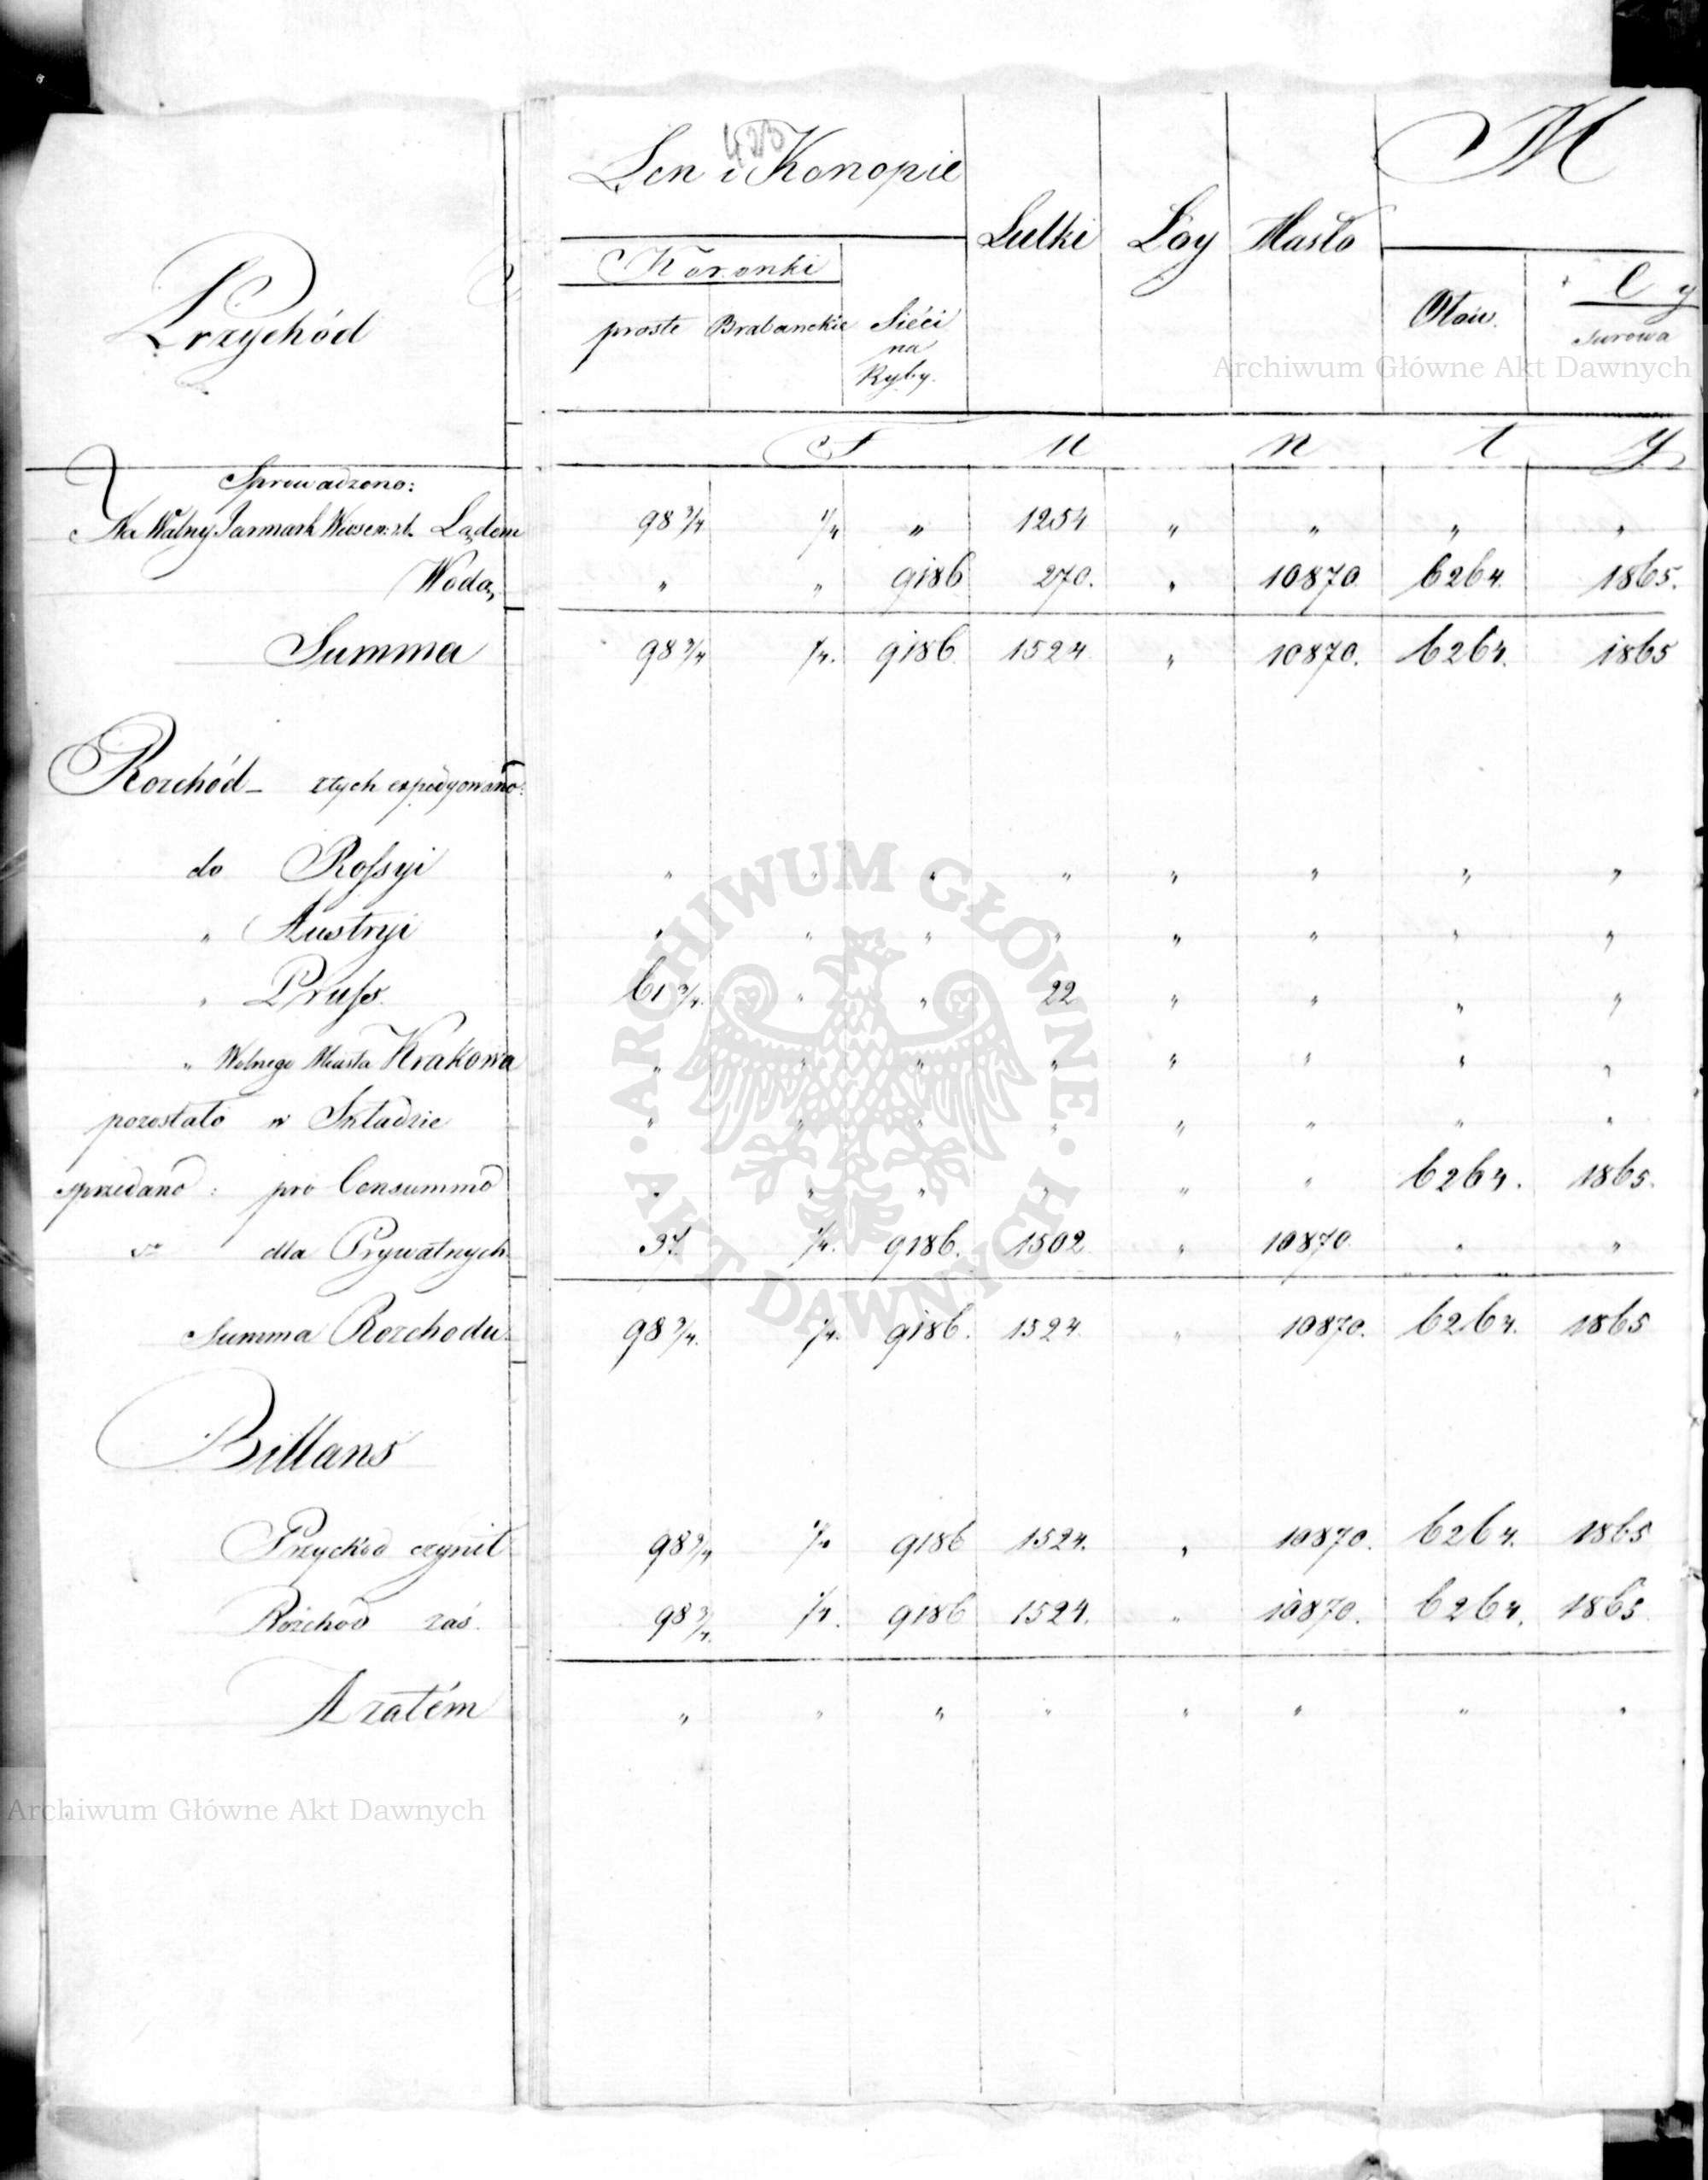 423
Len i Konopie
M
Lulki Łoy Masło
Koronki
C y
Przychód
proste Brabanckie Siéci
na
Ryby.
Ołów.
surowa
Archiwum Główne Akt Dawnych
F u n t y
Sprowadzono:
Na Walny Jarmark Lądem 98 3/4 1/4 " 1254 " " " "
Wodą " " 9186 270. " 10870 6264. 1865.
Summa 98 3/4 1/4. 9186 1524 " 10870. 6264. 1865
Rozchód – z tych expedyowano:
do Rossyi " " " " " " " "
" Austryi " " " " " " " "
" Pruss. 61 3/4. " " 22 " " " "
" Wolnego Miasta Krakowa " " " " " " " "
pozostało w Składzie " " " " " " " "
sprzedano : pro Consummo " " " " " " 6264. 1865.
dla Prywatnych 37. 1/4. 9186. 1502 " 10870. " "
Summa Rozchodu 98 3/4. 1/4. 9186. 1524 " 10870. 6264. 1865
Billans
Przychod czynił 98 3/4 1/4 9186 1524. " 10870. 6264. 1865
Rozchod zaś. 98 3/4. 1/4. 9186 1524. " 10870. 6264. 1865
A zatém " " " " " " " "
Archiwum Główne Akt Dawnych
ARCHIWUM GŁÓWNE AKT DAWNYCH